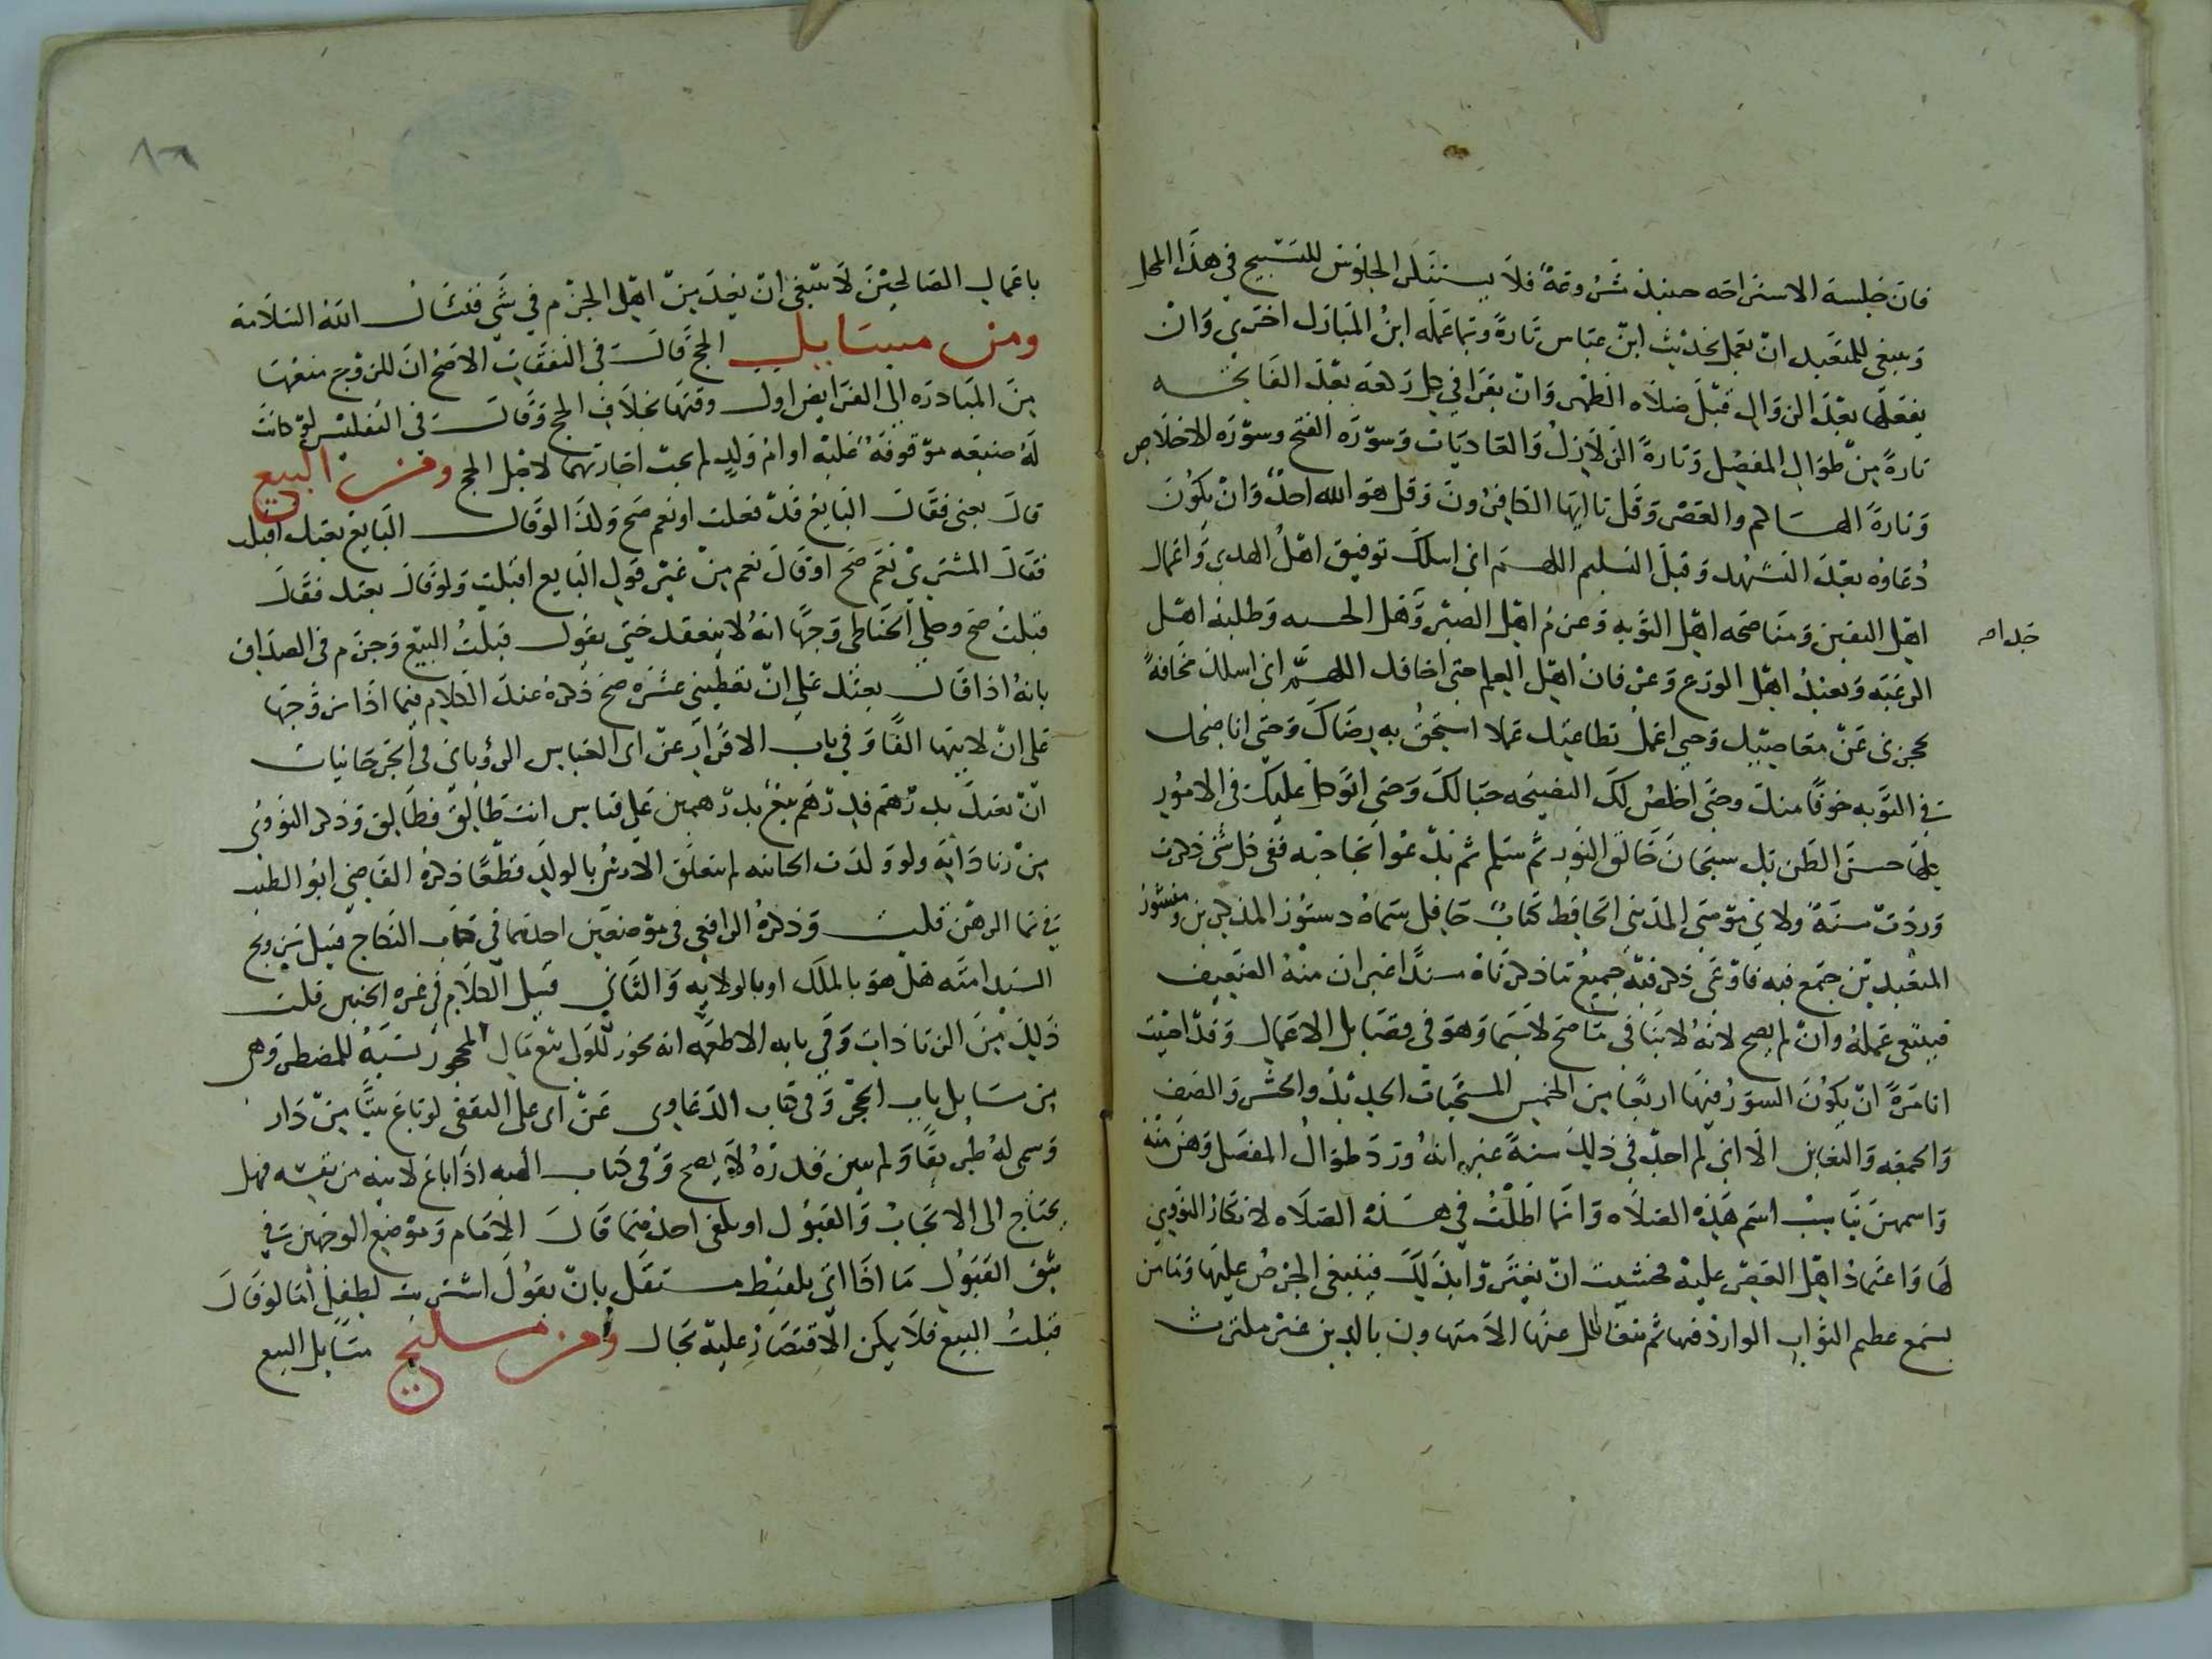 فان جلسة الاستراحه حينيذ مشروعة فلا يستنكر الجلوس للتسبيح في هذا المحل
وينبغي للمتعبد ان يعمل بحديث ابن عباس تارة وبما عمله ابن المبارك اخرى وان
يفعلها بعد الزوال قبل صلاه الظهر وان يقرا في كل ركعه بعد الفاتحه
تارة من طوال المفصل وتارة الزلزلة والعاديات وسورة الفتح وسوره الاخلاص
وتارة الهاكم والعصر وقل يا ايها الكافرون وقل هو الله احد وان يكون
دعاؤه بعد التشهد وقبل التسليم اللهم اني اسلك توفيق اهل الهدى واعمال
اهل اليقين ومناصحه اهل التوبه وعزم اهل الصبر وجد اهل الخشيه وطلبة اهل
الرغبه وتعبد اهل الورع وعرفان اهل العلم حتى اخافك اللهم اني اسلك مخافة
تحجزني عن معاصيك وحتى اعمل بطاعتك عملا استحق به رضاك وحتى اناصحك
في التوبه خوفا منك وحتى اخلص لك النصيحه حبا لك وحتى اتوكل عليك في الامور
كلها حسن الظن بك سبحان خالق النور ثم سلم ثم يدعوا بحاجته ففي كل شي ذكرت
وردت سنة ولابي موسى المديني الحافظ كتاب حافل سماه دستور المذكرين ومنشور
المتعبدين جمع فيه فاوعى ذكر فيه جميع ما ذكرناه سندا غير ان منه الضعيف
فينبغي عمله وان لم يصح لانه لا ينافي ما صح لاسيما وهو في فضايل الاعمال وقد احببت
انا مرة ان يكون السور فيها اربعا من الخمس المسبحات الحديد والحشر والصف
والجمعه والتغابن الا اني لم اجد في ذلك سنة غير انه ورد طوال المفصل وهن منه
واسمهن يناسب اسم هذه الصلاه وانما اطلت في هذه الصلاه لانكار النووي
لها واعتماد اهل العصر عليه فخشيت ان يغتروا بذلك فينبغي الحرص عليها واما من
يسمع عظيم الثواب الوارد فيها ثم يتغافل عنها الا متهاون بالدين غير مكترث
باعمال الصالحين لا ينبغي ان يعد من اهل الحزم في شي فنسال الله السلامة
ومن مسايل الحج قال في النفقات الاصح ان للزوج منعها
من المبادره الى الفرايض اول وقتها بخلاف الحج وقال في التفليس لو كانت
له ضيعه موقوفة عليه او ام ولد لم يجب اجارتهما لاجل الحج ومن البيع
قال بعني فقال البايع قد فعلت او نعم صح ولذا لو قال البايع بعتك اقبلت
فقال المشتري نعم صح او قال نعم من غير قول البايع اقبلت ولو قال بعتك فقال
قبلت صح وحكى الحناطي وجها انه لا ينعقد حتى يقول قبلت البيع وجزم في الصداق
بانه اذا قال بعتك على ان تعطيني عشره صح ذكره عند الكلام فيما اذا زوجها
على ان لابيها الفا وفي باب الاقرار عن ابي العباس الروياني في الجرجانيات
ان بعتك بدرهم فدرهم بيع بدرهمين على قياس انت طالق فطالق وذكر النووي
من زياداته ولو ولدت الجانيه لم يتعلق الارش بالولد قطعا ذكره القاضي ابو الطيب
في نما الرهن قلت وذكره الرافعي في موضعين احدهما في كتاب النكاح قبيل تزويج
السيد امته هل هو بالملك او بالولايه والثاني قبيل الكلام في غره الجنين قلت
ذلك من الزيادات وفي بابه الاطعمه انه يجوز للولي بيع مال المحجور نسية للمضطر وهي
من مسايل باب الحجر وفي كتاب الدعاوي عن ابي علي الثقفي لو باع بيتا من دار
وسمى له طريقا ولم يبين قدره لا يصح وفي كتاب الهبه اذا باع لابنه من نفسه فهل
يحتاج الى الايجاب والقبول او يكفي احدهما قال الامام وموضع الوجهين في
شق القبول ما اذا اتى بلفظ مستقل بان يقول اشتريت لطفلي اما لو قال
قبلت البيع فلا يمكن الاقتصار عليه بحال ومن مسايل البيع